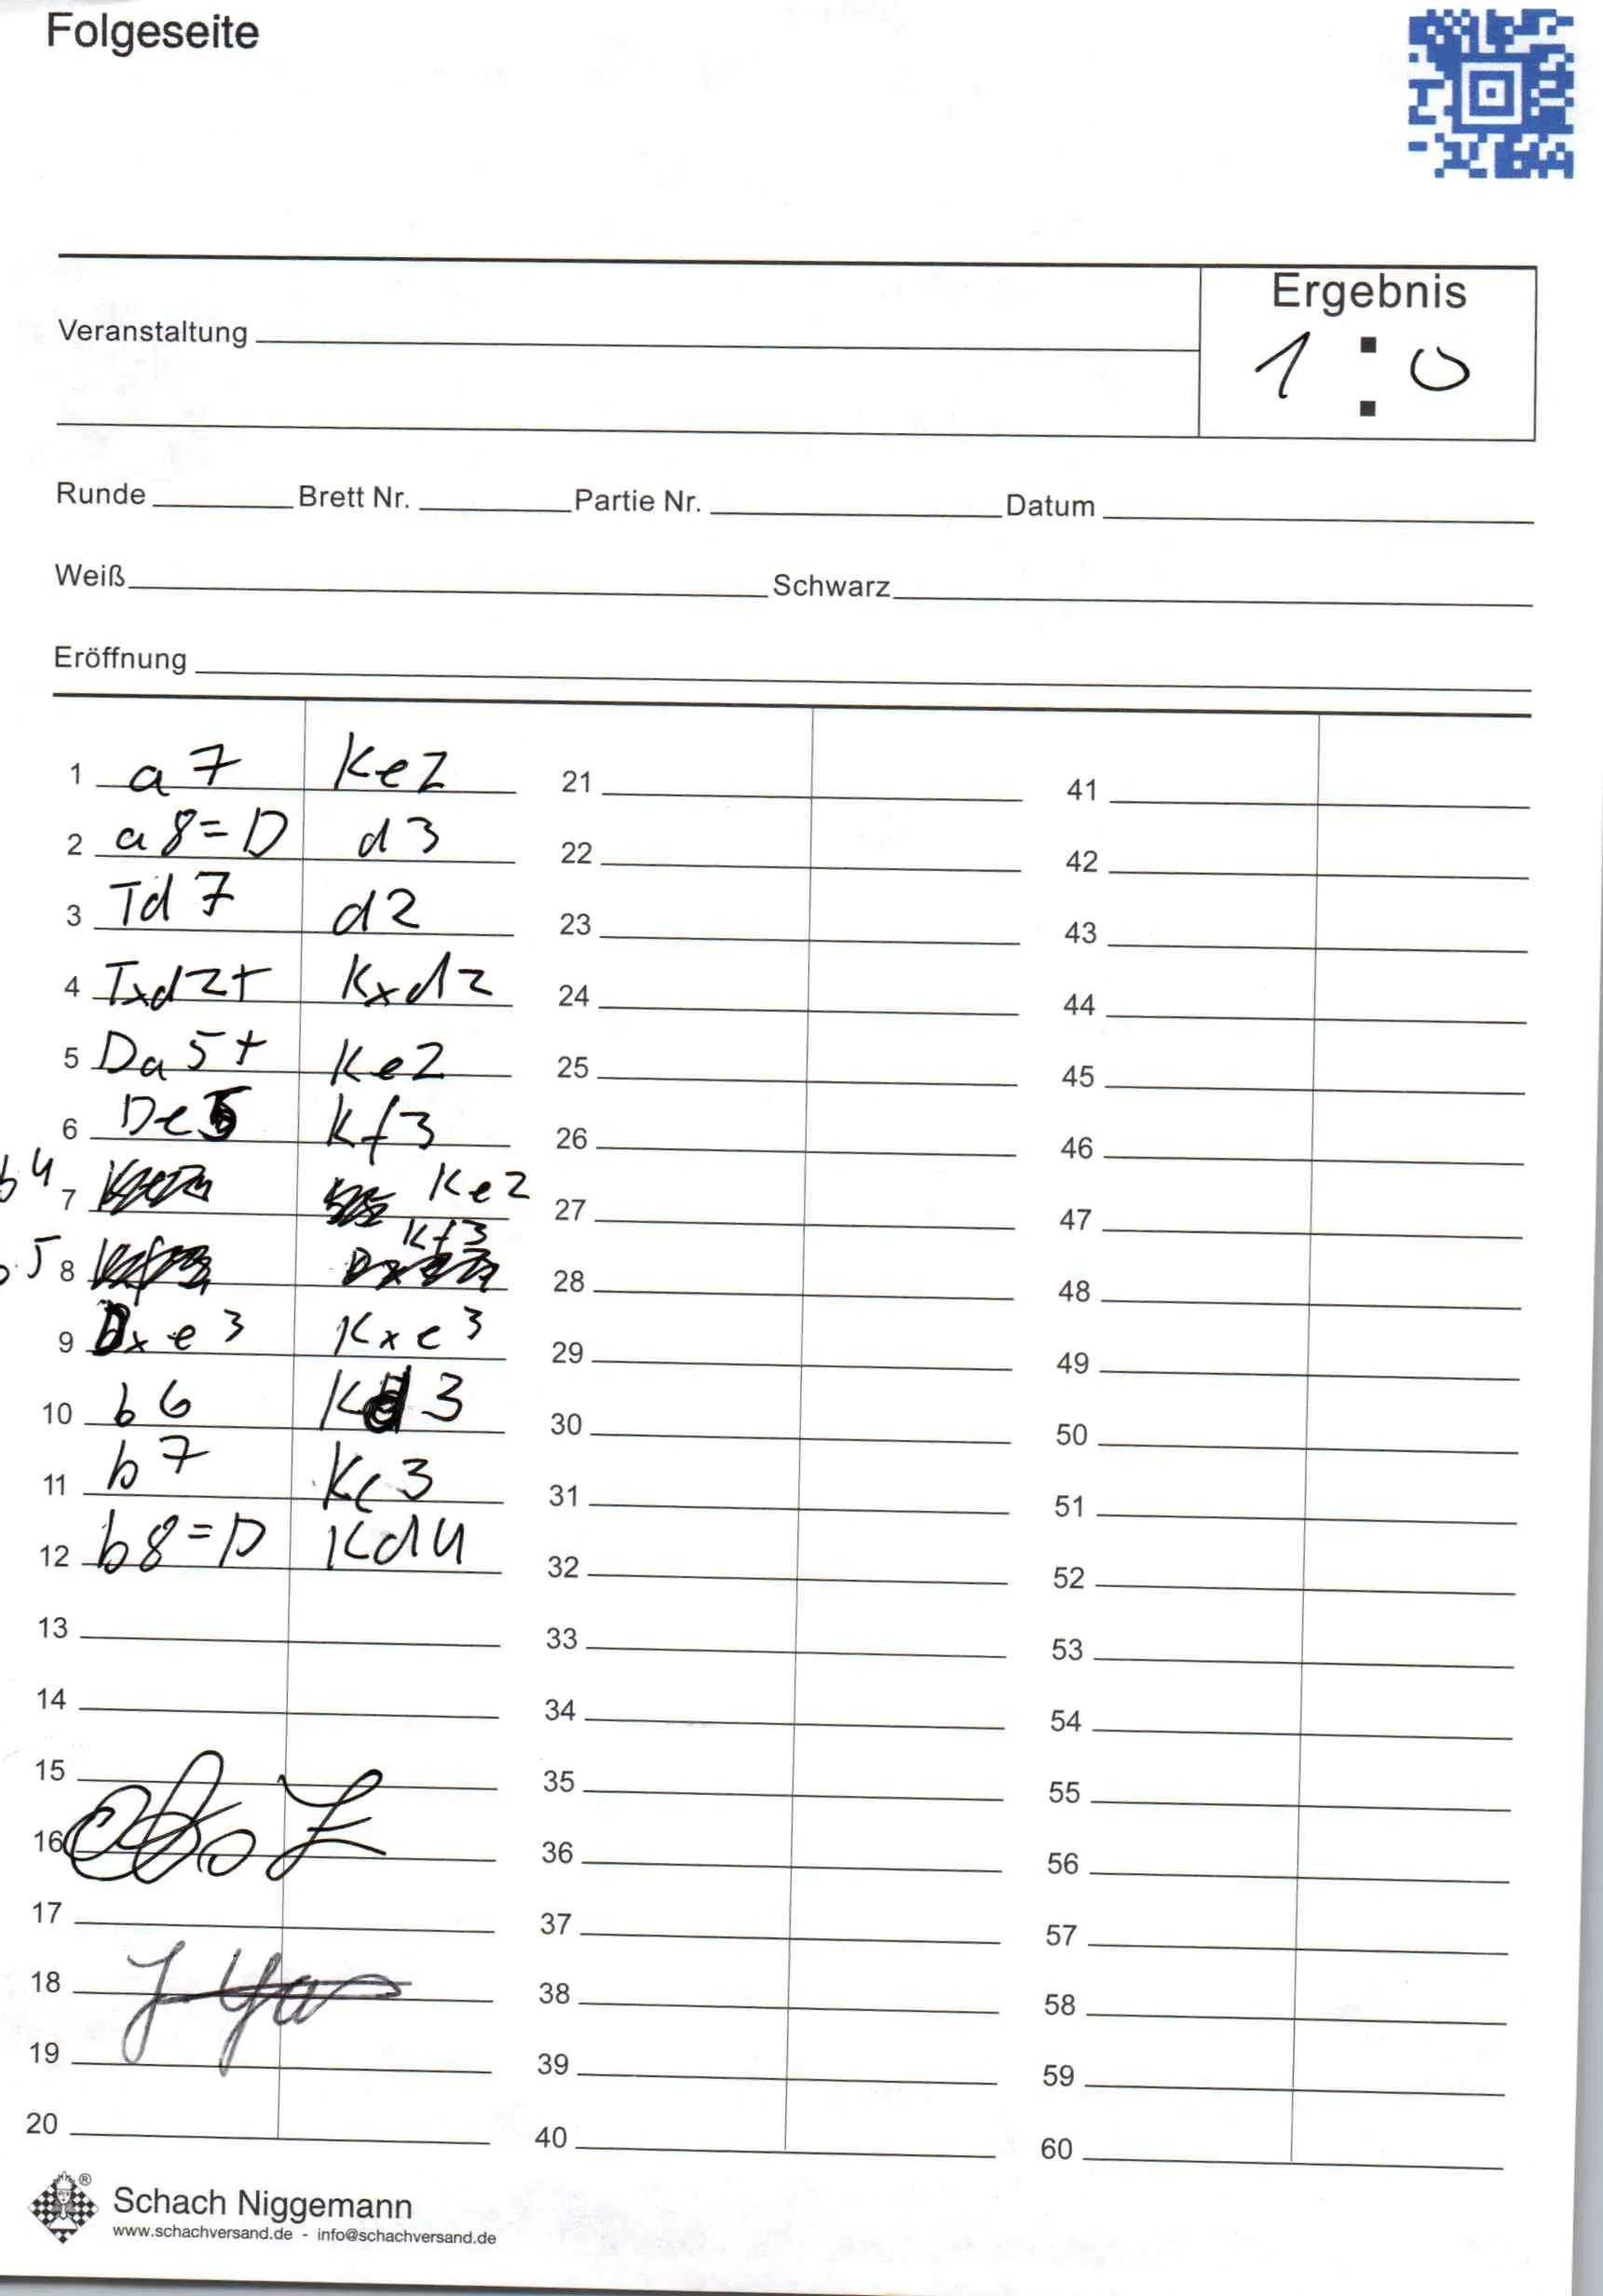 Folgeseite
Ergebnis
1 : 0
Veranstaltung
Runde Brett Nr. Partie Nr. Datum
Weiß Schwarz
Eröffnung
1 a7 Ke2 21 41
2 a8=D d3 22 42
3 Td7 d2 23 43
4 Txd2+ Kxd2 24 44
5 Da5+ Ke2 25 45
6 De5 Kf3 26 46
b4 7 Ke2 27 47
b5 8 Kf3 28 48
9 Dxe3 Kxe3 29 49
10 b6 Kd3 30 50
11 b7 Kc3 31 51
12 b8=D Kd4 32 52
13 33 53
14 34 54
15 35 55
16 36 56
17 37 57
18 38 58
19 39 59
20 40 60
Schach Niggemann ®
www.schachversand.de - info@schachversand.de